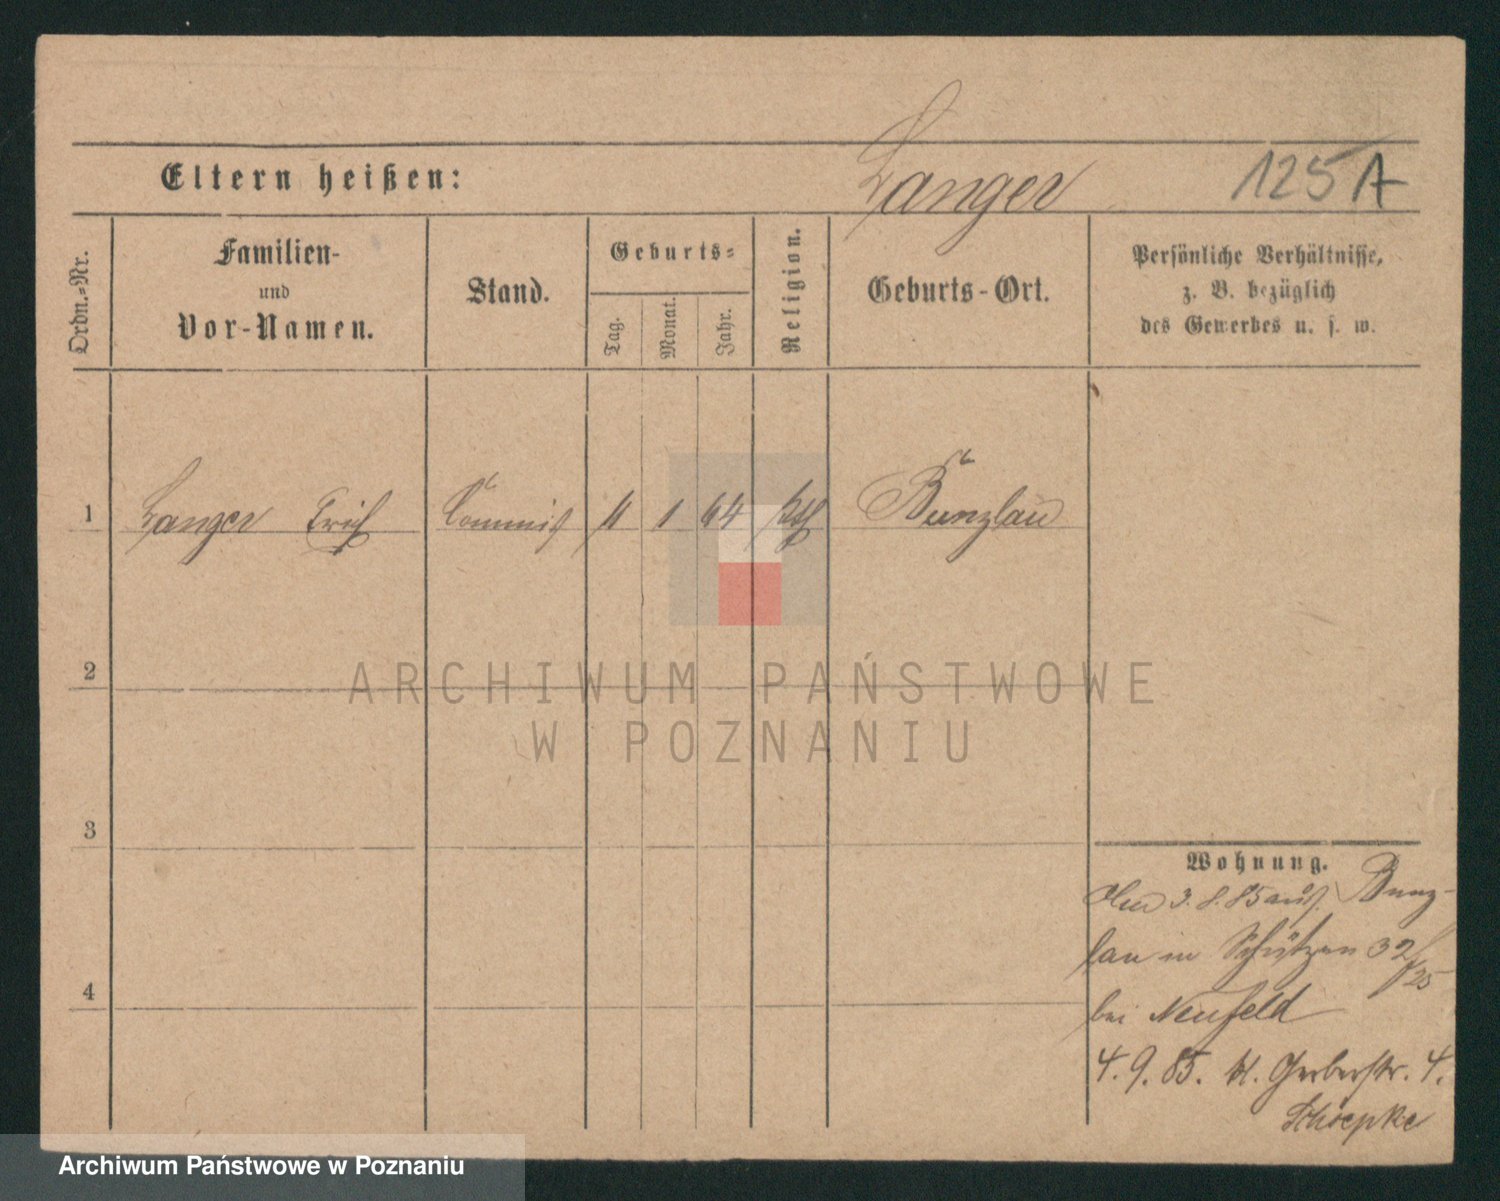 Langer 125 A
Eltern heißen:
Ordn.-Nr.
Familien-
und
Vor-Namen.
Stand.
Geburts-
Tag.
Monat.
Jahr.
Religion.
Geburts-Ort.
Persönliche Verhältnisse,
z. B. bezüglich
des Gewerbes u. s. w.
1 Langer Erich Commis 11 1 64 kth Bunzlau
2
3
4
Wohnung.
3. 8. 85 aus Bunz-
lau in Schützen 32/25
bei Neufeld
4. 9. 85. kl. Gerberstr. 4.
Schoepke
ARCHIWUM PAŃSTWOWE
W POZNANIU
Archiwum Państwowe w Poznaniu